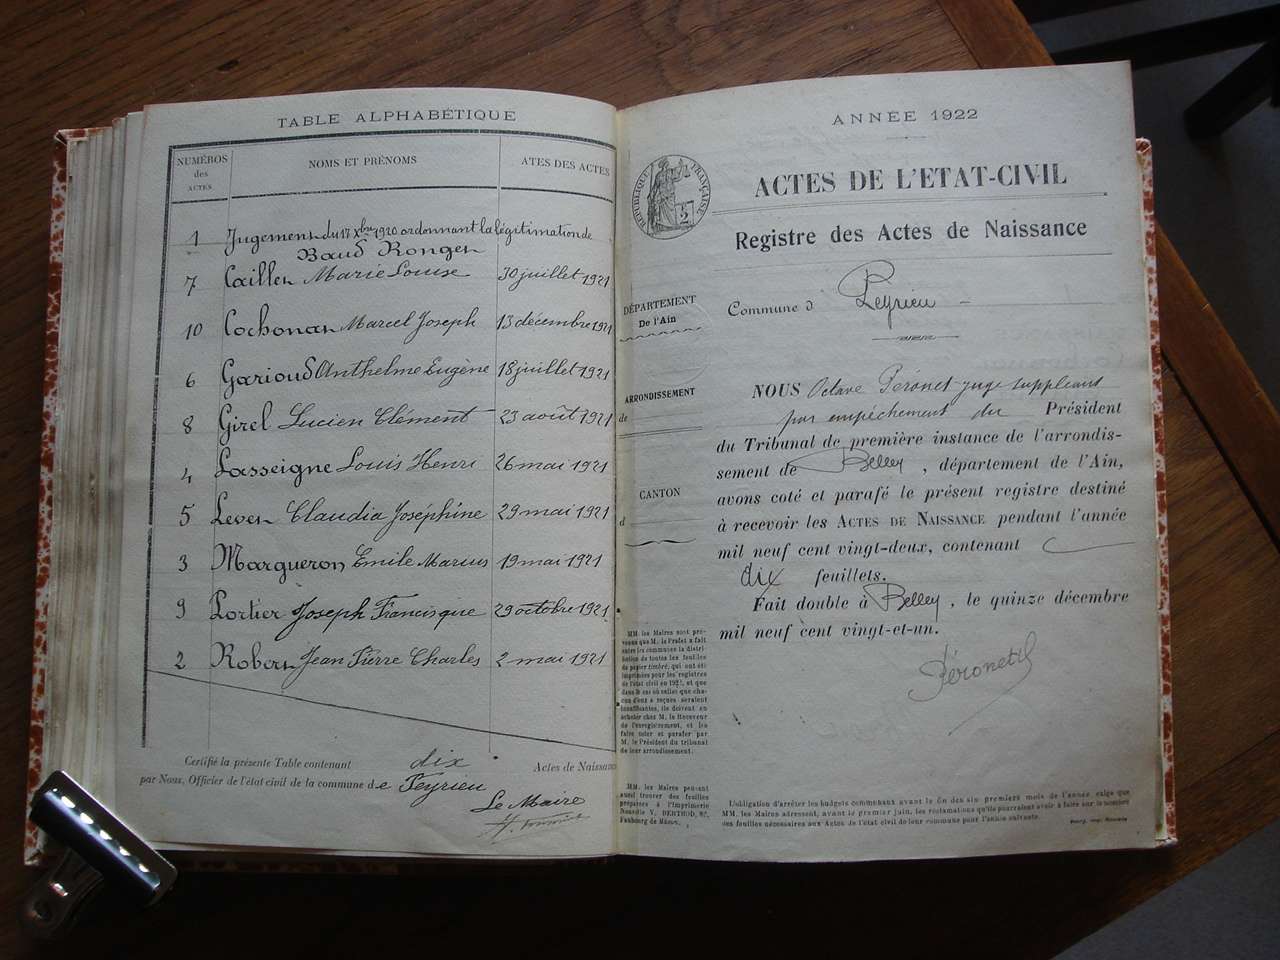 TABLE ALPHABÉTIQUE
NUMÉROS des ACTES
NOMS ET PRÉNOMS
ATES DES ACTES
1 Jugement du 17 Xbre 1920 ordonnant la légitimation de
Baud Roger
7 Cailler Marie Louise 30 juillet 1921
10 Cochonar Marcel Joseph 13 décembre 1921
6 Garioud Anthelme Eugène 18 juillet 1921
8 Girel Lucien Clément 23 août 1921
4 Lasseigne Louis Henri 26 mai 1921
5 Lever Claudia Joséphine 29 mai 1921
3 Margueron Emile Marius 19 mai 1921
9 Portier Joseph Francisque 29 octobre 1921
2 Robert Jean Pierre Charles 2 mai 1921
Certifié la présente Table contenant dix Actes de Naissance
par Nous, Officier de l'état civil de la commune de Peyrieu
Le Maire
ANNÉE 1922
RÉPUBLIQUE FRANÇAISE
ACTES DE L'ETAT-CIVIL
Registre des Actes de Naissance
DÉPARTEMENT
De l'Ain
ARRONDISSEMENT
de
CANTON
d
Commune d Peyrieu
NOUS Octave Péronet juge suppléant
par empêchement du Président
du Tribunal de première instance de l'arrondis-
sement de Belley, département de l'Ain,
avons coté et parafé le présent registre destiné
à recevoir les ACTES DE NAISSANCE pendant l'année
mil neuf cent vingt-deux, contenant
dix feuillets.
Fait double à Belley, le quinze décembre
mil neuf cent vingt-et-un.
Péronet
MM. les Maires sont pré-
venus que M. le Préfet a fait
entre les communes la distri-
bution de toutes les feuilles
de papier timbré, qui ont été
imprimées pour les registres
de l'état civil en 1922, et que
dans le cas où celles que cha-
cun d'eux a reçues seraient
insuffisantes, ils doivent en
acheter chez M. le Receveur
de l'enregistrement, et les
faire coter et parafer par
M. le Président du tribunal
de leur arrondissement.
MM. les Maires peuvent
aussi trouver des feuilles
préparées à l'Imprimerie
Nouvelle V. BERTHOD, 87,
Faubourg de Mâcon.
L'obligation d'arrêter les budgets communaux avant la fin des six premiers mois de l'année exige que
MM. les Maires adressent, avant le premier juin, les réclamations qu'ils pourraient avoir à faire sur le nombre
des feuilles nécessaires aux Actes de l'état civil de leur commune pour l'année suivante.